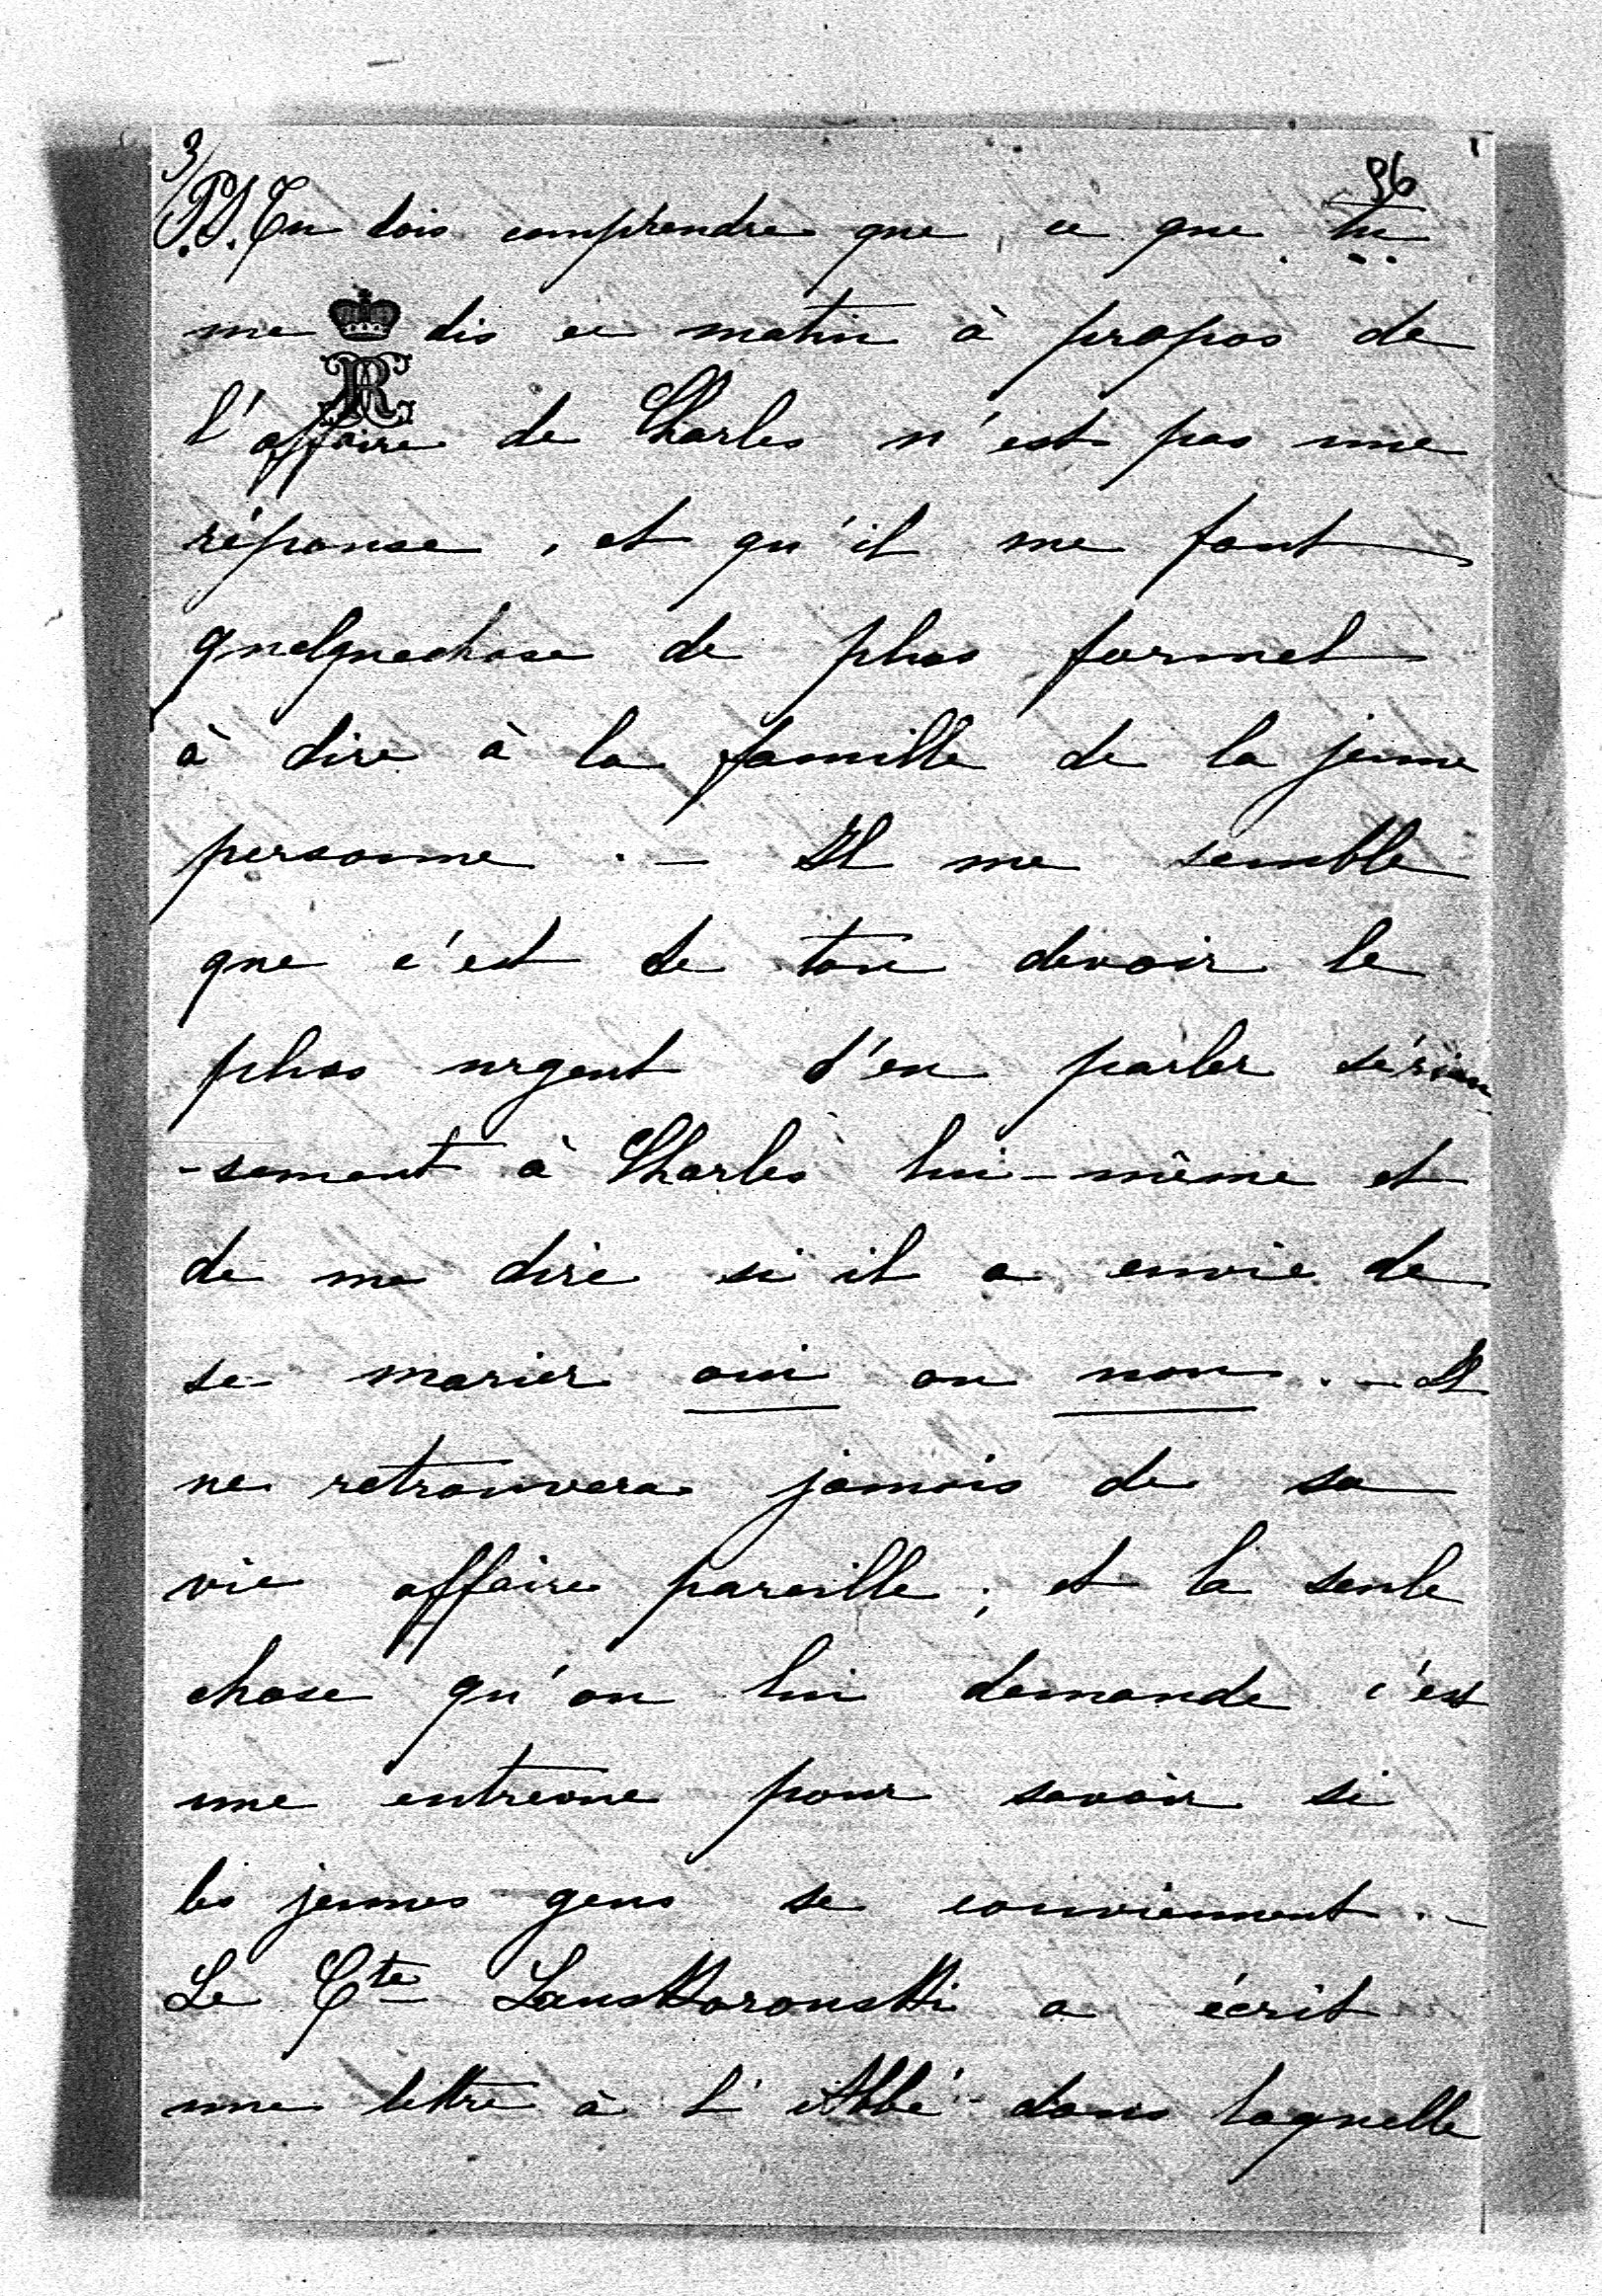 3/
96
P.S. Tu dois comprendre que ce que tu
me dis ce matin à propos de
l'affaire de Charles n'est pas une
réponse, et qu'il me faut
quelquechose de plus formel
à dire à la famille de la jeune
personne. — Il me semble
que c'est de ton devoir le
plus urgent d'en parler sérieu
-sement à Charles lui-même et
de me dire si il a envie de
se marier oui ou non. — Il
ne retrouvera jamais de sa
vie affaire pareille; et la seule
chose qu'on lui demande c'est
une entrevue pour savoir si
les jeunes gens se conviennent. —
Le Cte Lanskoronski a écrit
une lettre à l'Abbé dans laquelle